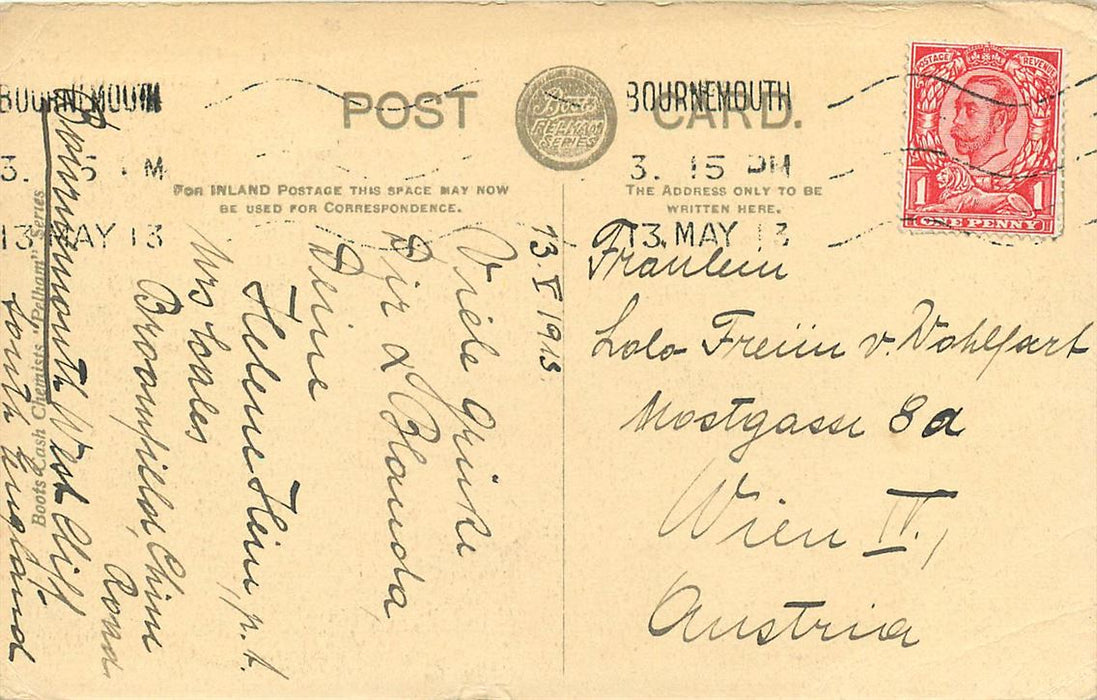 POST CARD.
Boots
PELHAM
SERIES
FOR INLAND POSTAGE THIS SPACE MAY NOW
BE USED FOR CORRESPONDENCE.
THE ADDRESS ONLY TO BE
WRITTEN HERE.
BOURNEMOUTH
3. 15 PM
13. MAY 13
BOURNEMOUTH
3. 15 PM
13 MAY 13
POSTAGE REVENUE
1 1
ONE PENNY
Boots Cash Chemists "Pelham" Series
13. V 1913
Viele Grüße
Dir & Blanda
Deine
Helene Hein, p. t.
Mrs Coales
Broomfield, Chine
Road
Bournemouth West Cliff
South England
Fräulein
Lolo Freiin v. Wohlfart
Mostgasse 8a
Wien IV.,
Austria